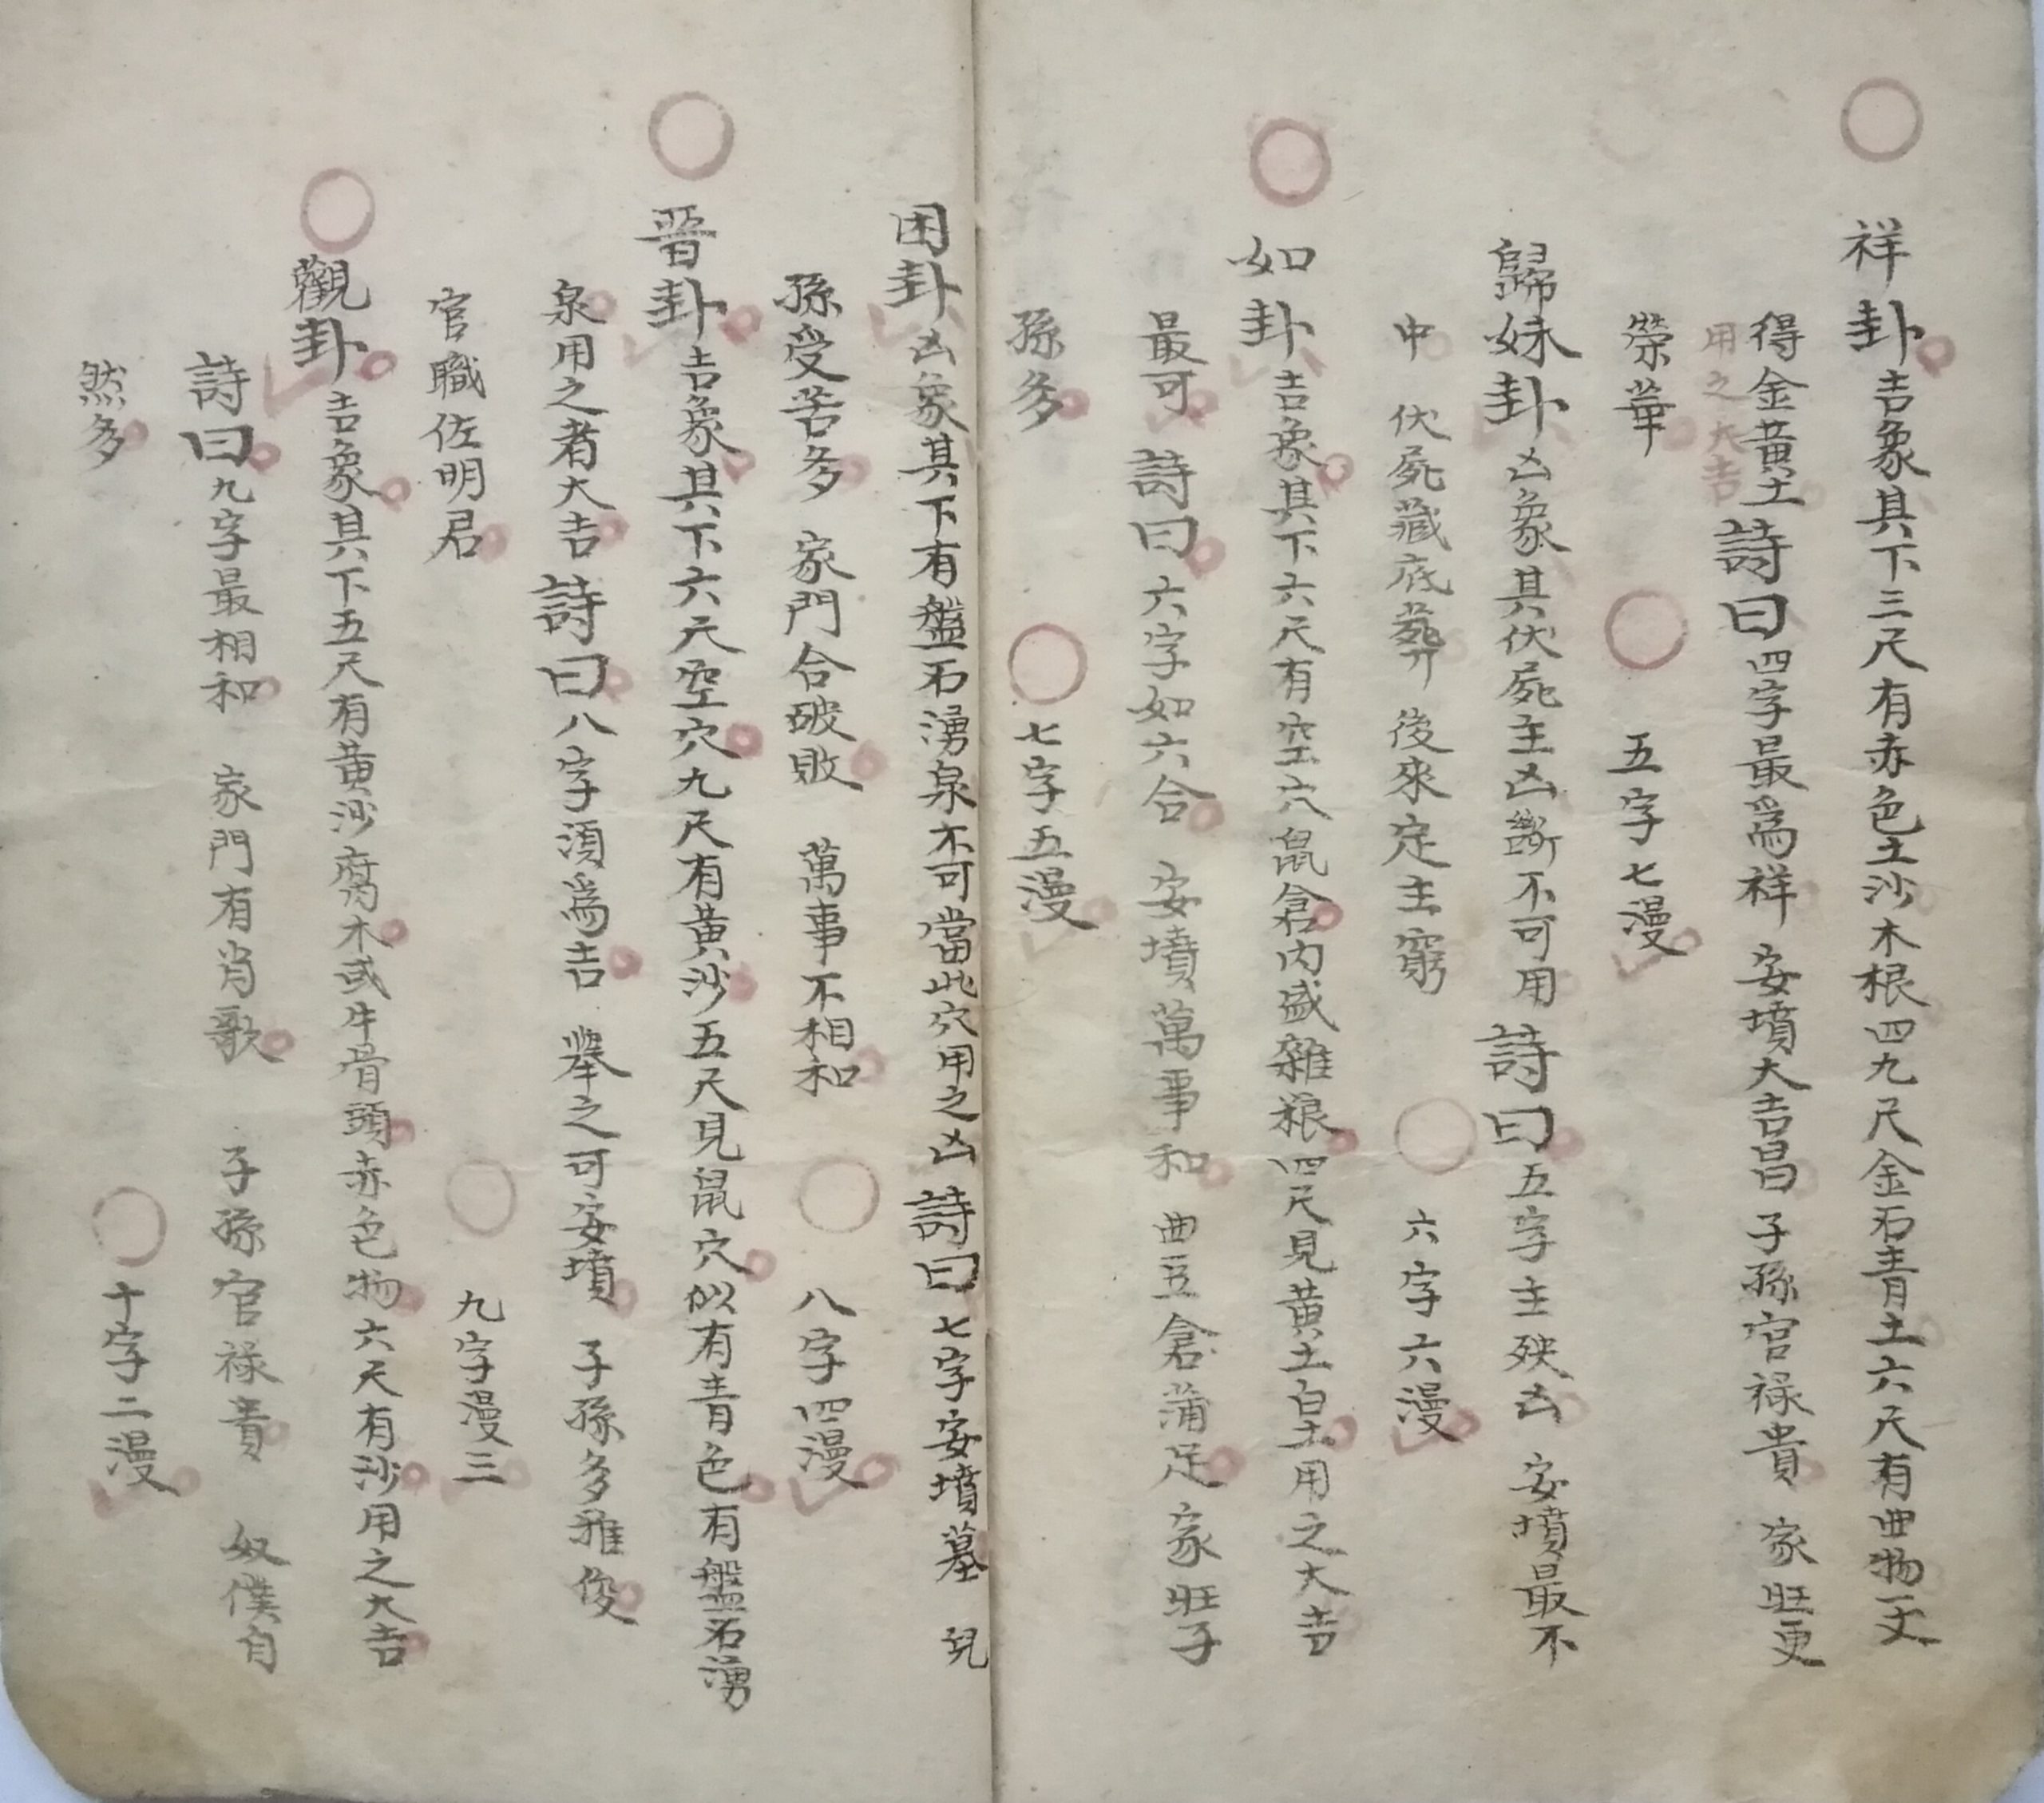 祥卦吉象其下三尺有赤色土沙木根四九尺金石青土六尺有曲物一丈
得金黃土詩曰四字最爲祥 安墳大吉昌 子孫官禄貴 家旺更
用之大吉
荣華 五字七漫
歸妹卦凶象其伏屍主凶斷不可用詩曰五字主殃凶 安墳最不
中 伏屍藏底葬 後來定主窮 六字六漫
如卦吉象其下六尺有空穴鼠倉内盛雜粮四尺見黃土白土用之大吉
最可 詩曰六字如六合 安墳萬事和 曲豆倉蒲足 家旺子
孫多 七字五漫
困卦凶象其下有盤石湧泉不可當此穴用之凶詩曰七字安墳墓 兒
孫受苦多 家門合破敗 萬事不相和 八字四漫
晉卦吉象其下六尺空穴九尺有黃沙五尺見鼠穴似有青色有盤石湧
泉用之者大吉詩曰八字須爲吉 舉之可安墳 子孫多雅俊
官職佐明君 九字漫三
觀卦吉象其下五尺有黃沙腐木或牛骨頭赤色物六尺有沙用之大吉
詩曰九字最相和 家門有肖歌 子孫官禄貴 奴僕自
然多 十字二漫